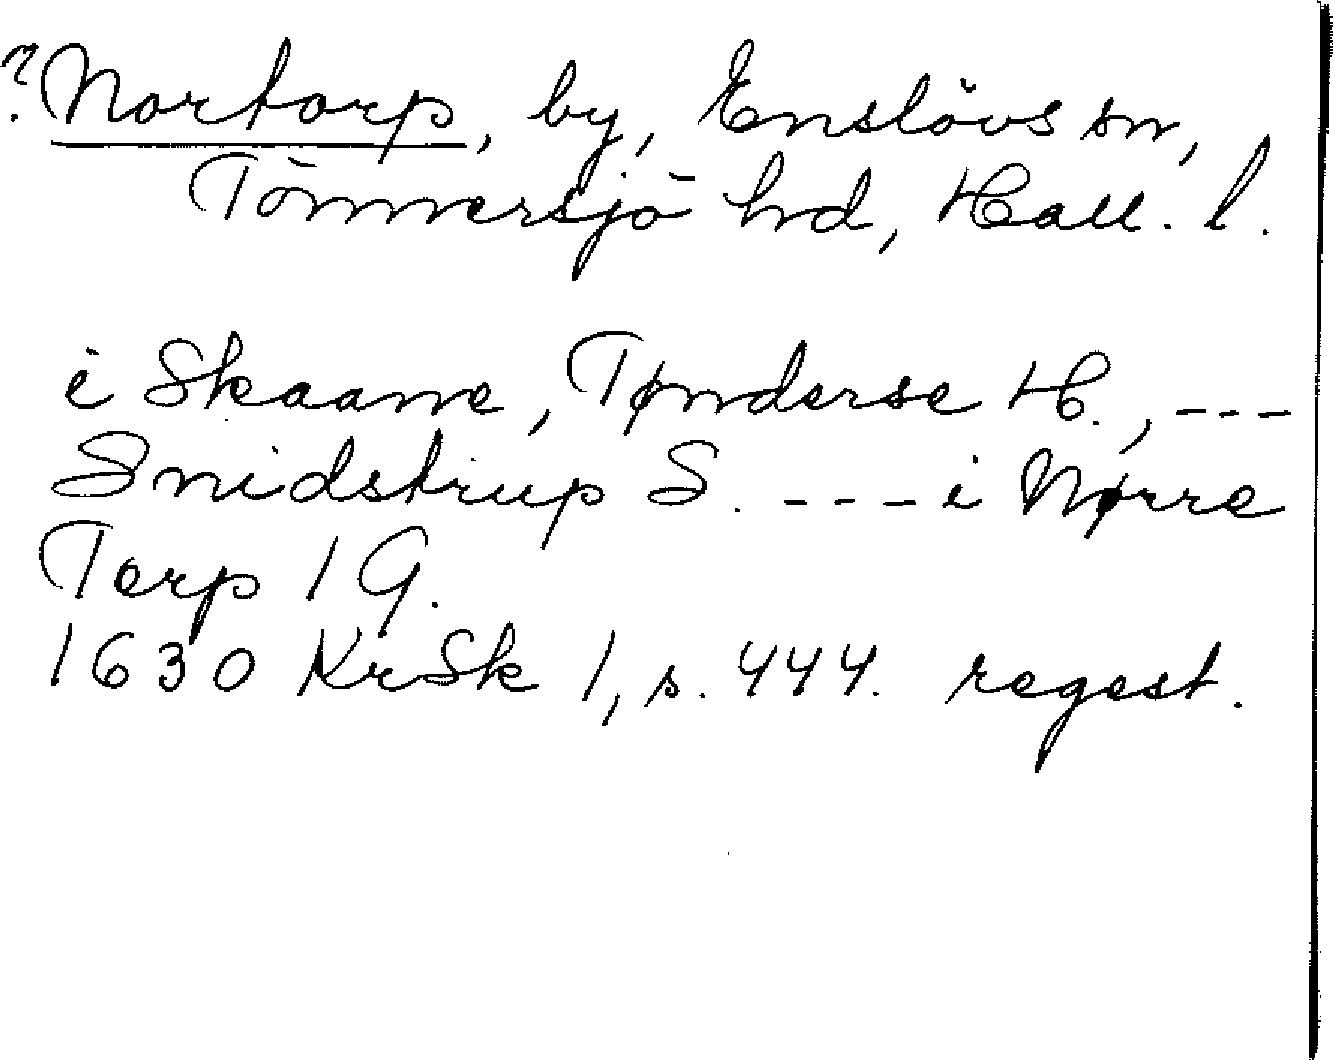 ? Nortorp, by, Enslövs sn,
Tönnersjö hd, Hall. l.
i Skaane, Tønderse H., ---
Snidstrup S. --- i Nørre
Torp 1 G.
1630 KrSk 1, s. 444. regest.